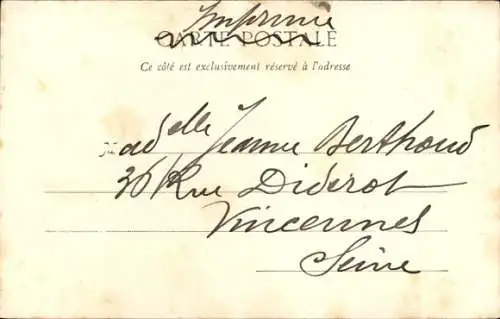 Imprimé
CARTE POSTALE
Ce côté est exclusivement réservé à l'adresse
Madelle Jeanne Berthoud
26 Rue Diderot
Vincennes
Seine